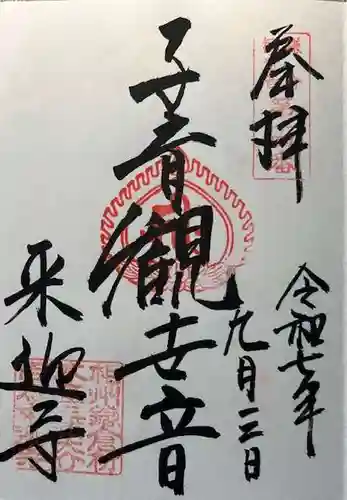 奉拝
令和七年
九月三日
子育観世音
来迎寺